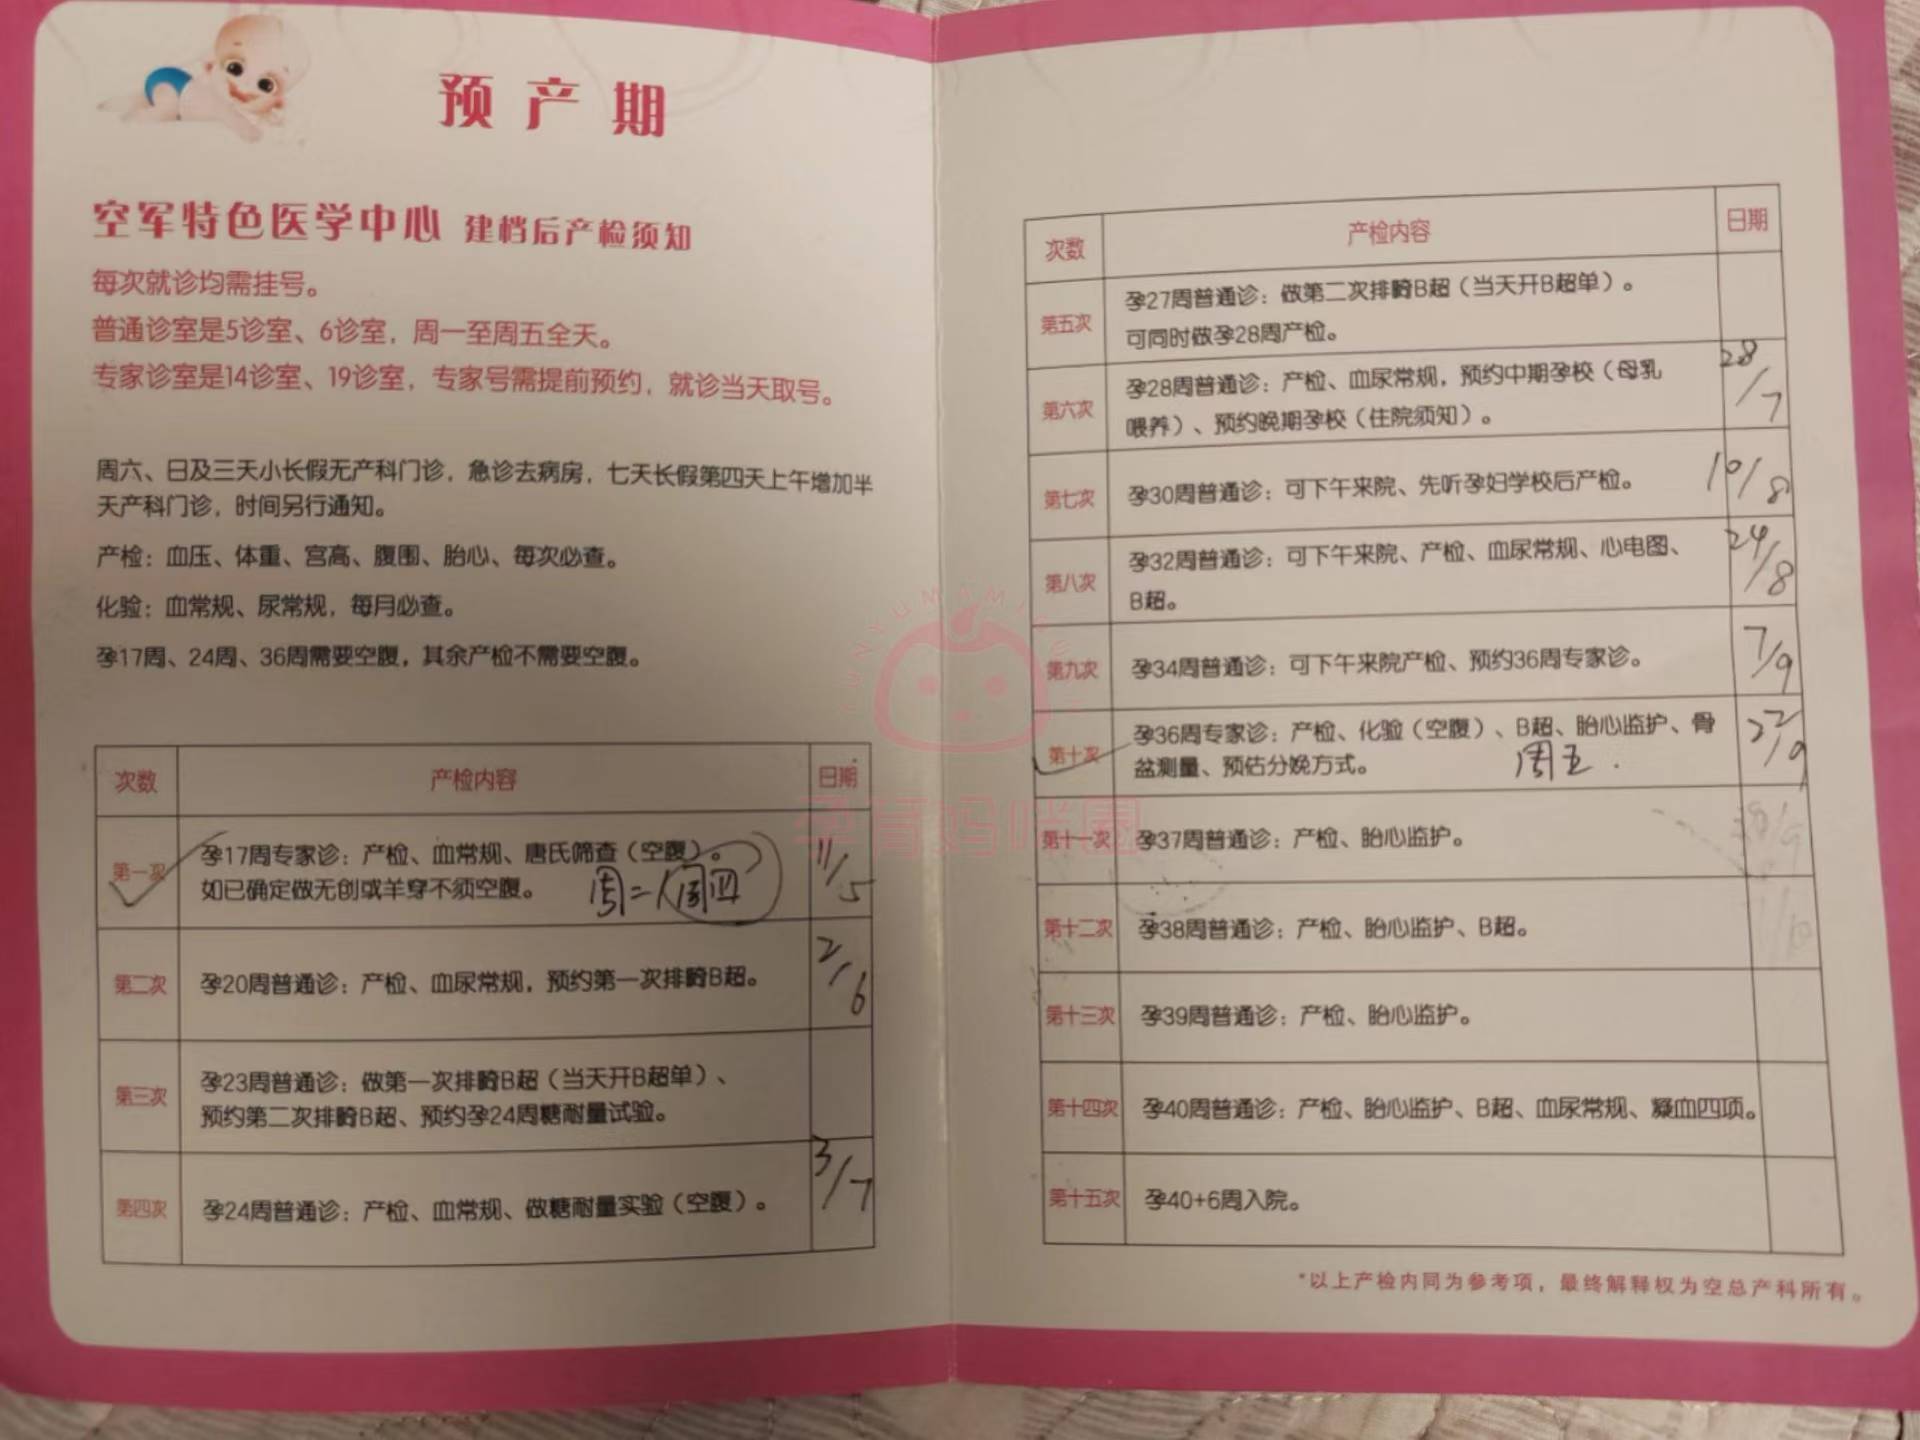 预产期
空军特色医学中心 建档后产检须知
每次就诊均需挂号。
普通诊室是5诊室、6诊室，周一至周五全天。
专家诊室是14诊室、19诊室，专家号需提前预约，就诊当天取号。
周六、日及三天小长假无产科门诊，急诊去病房，七天长假第四天上午增加半
天产科门诊，时间另行通知。
产检：血压、体重、宫高、腹围、胎心、每次必查。
化验：血常规、尿常规，每月必查。
孕17周、24周、36周需要空腹，其余产检不需要空腹。
次数 产检内容 日期
第一次 孕17周专家诊：产检、血常规、唐氏筛查（空腹）。 11/5
如已确定做无创或羊穿不须空腹。 周二 周四
第二次 孕20周普通诊：产检、血尿常规，预约第一次排畸B超。 2/6
第三次 孕23周普通诊：做第一次排畸B超（当天开B超单）、
预约第二次排畸B超、预约孕24周糖耐量试验。
第四次 孕24周普通诊：产检、血常规、做糖耐量实验（空腹）。 3/7
次数 产检内容 日期
第五次 孕27周普通诊：做第二次排畸B超（当天开B超单）。
可同时做孕28周产检。
第六次 孕28周普通诊：产检、血尿常规，预约中期孕校（母乳 28/7
喂养）、预约晚期孕校（住院须知）。
第七次 孕30周普通诊：可下午来院、先听孕妇学校后产检。 10/8
第八次 孕32周普通诊：可下午来院、产检、血尿常规、心电图、 24/8
B超。
第九次 孕34周普通诊：可下午来院产检、预约36周专家诊。 7/9
第十次 孕36周专家诊：产检、化验（空腹）、B超、胎心监护、骨 22/9
盆测量、预估分娩方式。 周五.
第十一次 孕37周普通诊：产检、胎心监护。
第十二次 孕38周普通诊：产检、胎心监护、B超。
第十三次 孕39周普通诊：产检、胎心监护。
第十四次 孕40周普通诊：产检、胎心监护、B超、血尿常规、凝血四项。
第十五次 孕40+6周入院。
*以上产检内同为参考项，最终解释权为空总产科所有。
孕育妈咪圈